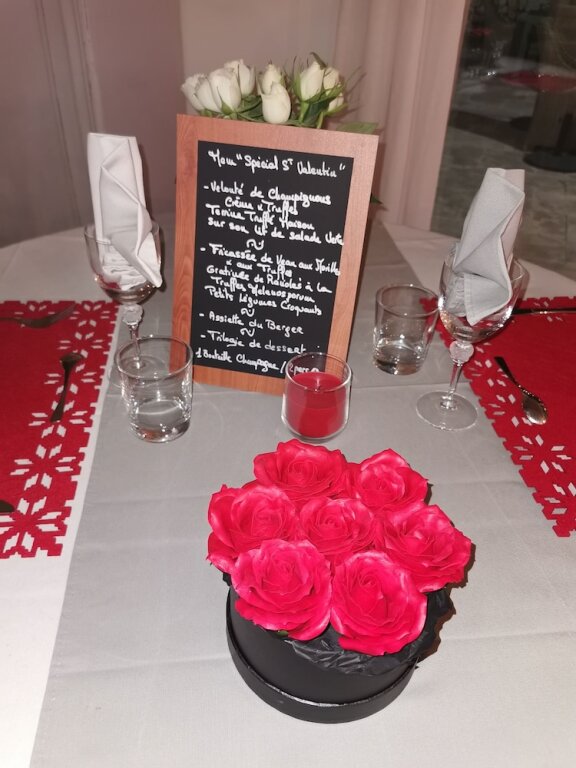 Menu "Spécial St Valentin"
- Velouté de Champignons
Crème & Truffes
Terrine Truffé Maison
sur son lit de salade Verte
- Fricassée de Veau aux Morilles
& aux Truffes
Gratinée de Ravioles à la
Truffes Melanosporum
Petits Légumes Croquants
- Assiette du Berger
- Trilogie de dessert
1 Bouteille Champagne / 2 pers